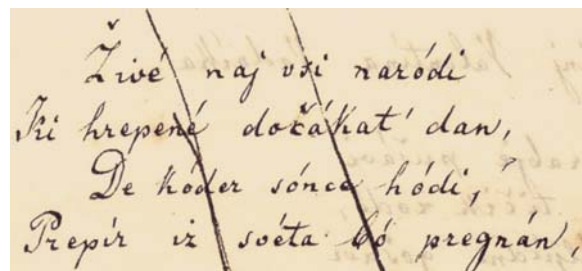 Živé naj vsi naródi
Ki hrepené dočakat' dan,
De kóder sónce hódi,
Prepír iz svéta bó pregnán,